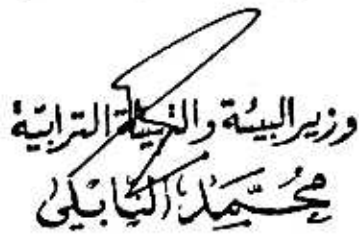 وزير البيئة والتهيئة الترابية
محمد النابلي